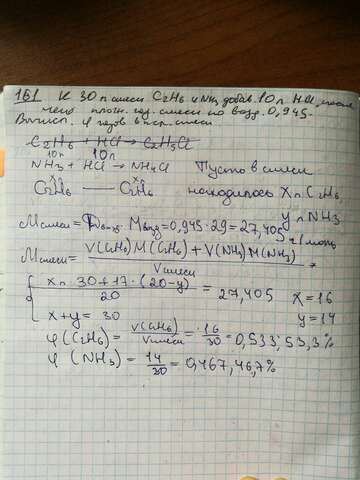 161 К 30 л смеси C2H6 и NH3 добав. 10 л HCl, после
чего плотн. газ. смеси по возд. 0,945.
Вычисл. φ газов в исх. смеси
C2H6 + HCl → C2H5Cl
10л 10л
NH3 + HCl → NH4Cl Пусть в смеси
xл xл
C2H6 — C2H6 находилось X л C2H6,
y л NH3
Mсмеси = Dвозд. Mвозд = 0,945 · 29 = 27,405 г/моль
Mсмеси = V(C2H6) M(C2H6) + V(NH3) M(NH3)
Vсмеси
{ x · 30 + 17 · (20 - y) / 20 = 27,405 x = 16
x + y = 30 y = 14
φ (C2H6) = V(C2H6) / Vсмеси = 16 / 30 = 0,533; 53,3%
φ (NH3) = 14 / 30 = 0,467, 46,7%